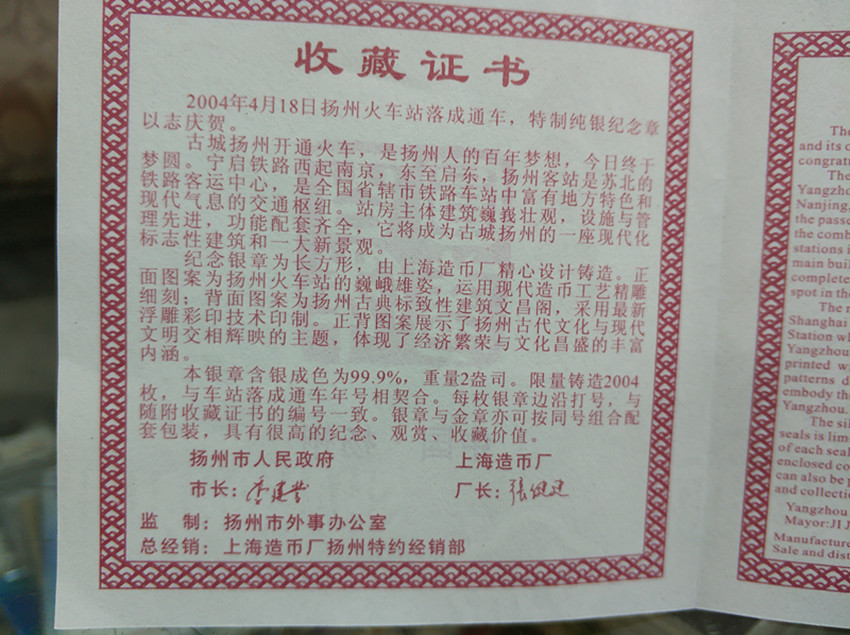 收藏证书
2004年4月18日扬州火车站落成通车，特制纯银纪念章
以志庆贺。
古城扬州开通火车，是扬州人的百年梦想，今日终于
梦圆。宁启铁路西起南京，东至启东，扬州客站是苏北的
铁路客运中心，是全国省辖市铁路车站中富有地方特色和
现代气息的交通枢纽。站房主体建筑巍义壮观，设施与管
理先进，功能配套齐全，它将成为古城扬州的一座现代化
标志性建筑和一大新景观。
纪念银章为长方形，由上海造币厂精心设计铸造。正
面图案为扬州火车站的巍峨雄姿，运用现代造币工艺精雕
细刻；背面图案为扬州古典标致性建筑文昌阁，采用最新
浮雕彩印技术印制。正背图案展示了扬州古代文化与现代
文明交相辉映的主题，体现了经济繁荣与文化昌盛的丰富
内涵。
本银章含银成色为99.9%，重量2盎司。限量铸造2004
枚，与车站落成通车年号相契合。每枚银章边沿打号，与
随附收藏证书的编号一致。银章与金章亦可按同号组合配
套包装，具有很高的纪念、观赏、收藏价值。
扬州市人民政府 上海造币厂
市长： 厂长：
监 制：扬州市外事办公室
总经销：上海造币厂扬州特约经销部
The
and its
congratu
The
Yangzho
Nanjing,
the passe
the comb
stations i
main buil
complete
spot in the
The
Shanghai
Station wh
Yangzhou
printed w
patterns d
embody th
Yangzhou.
The sil
seals is lim
of each seal
enclosed co
can also be p
and collectio
Yangzhou
Mayor:JI J
Manufacture
Sale and dist